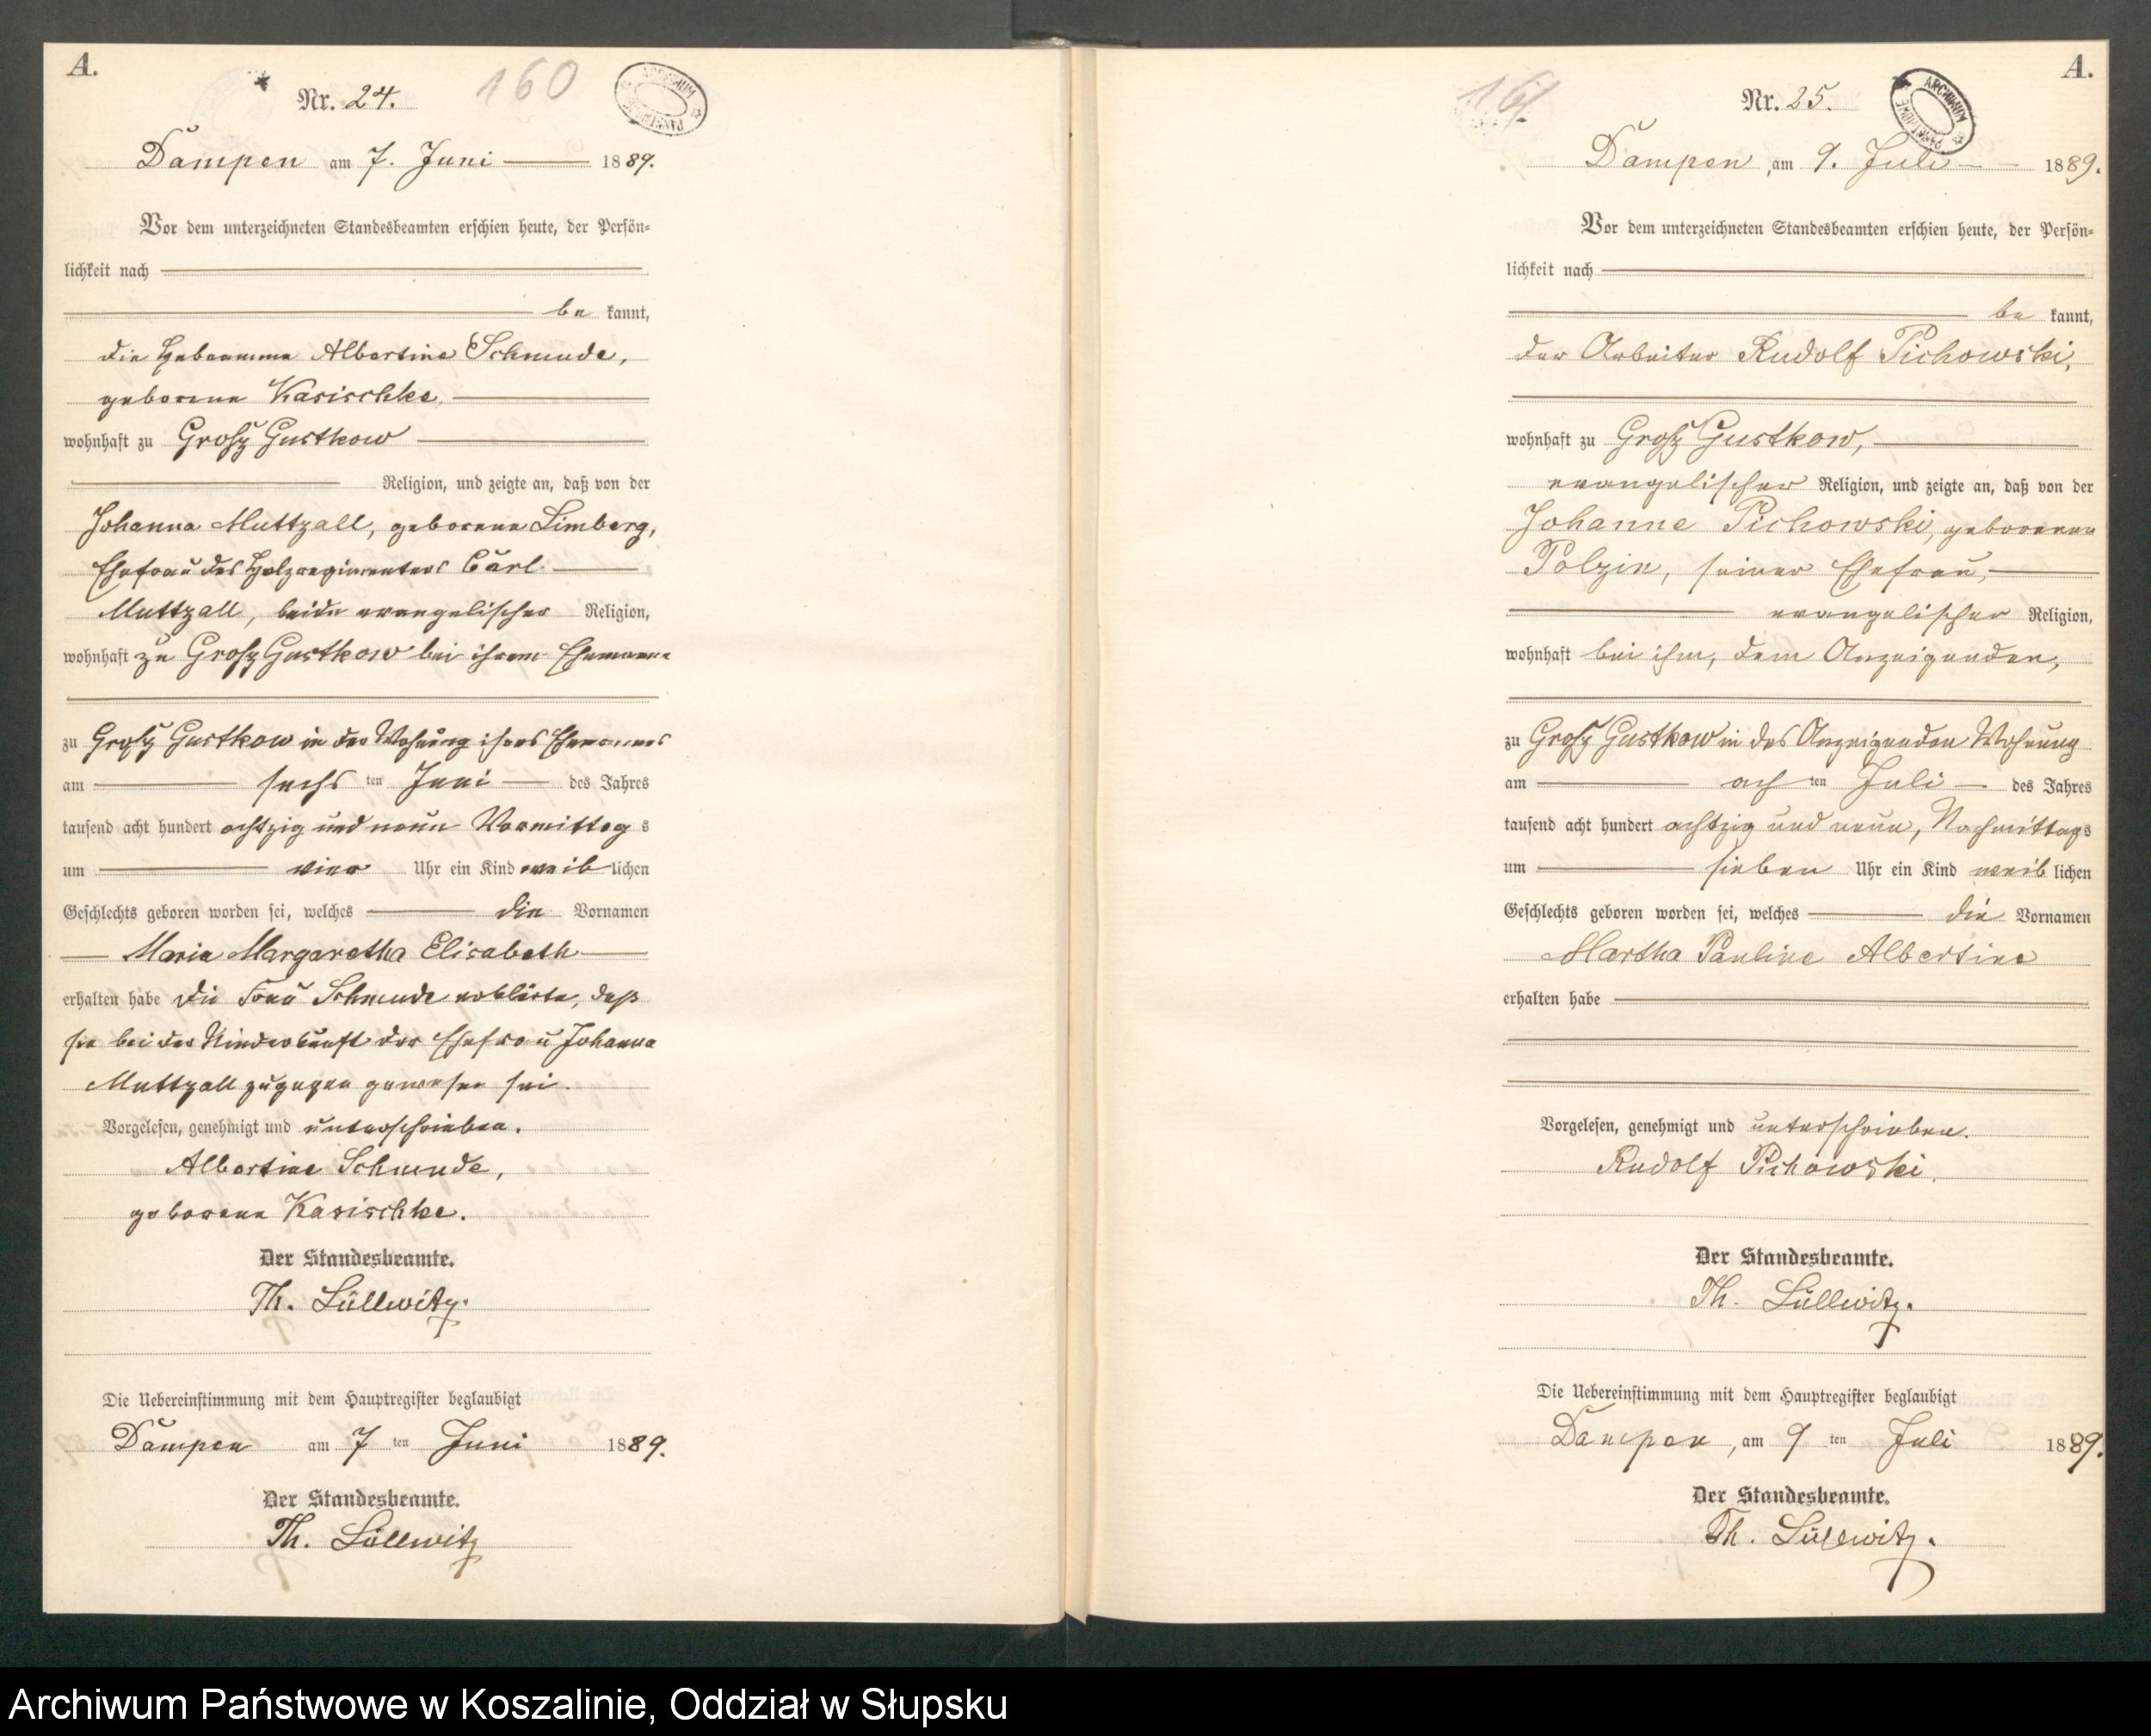 A.
160
ARCHIWUM PAŃSTWOWE
Nr. 24.
Dampen am 7. Juni 1889.
Vor dem unterzeichneten Standesbeamten erschien heute, der Persön-
lichkeit nach
be kannt,
die Hebeamme Albertine Schmude,
geborene Kasischke
wohnhaft zu Groß Gustkow
Religion, und zeigte an, daß von der
Johanna Muttzall, geborene Limberg,
Ehefrau des Holzregimenters Carl
Muttzall, beide evangelischer Religion,
wohnhaft zu Groß Gustkow bei ihrem Ehemanne
zu Groß Gustkow in der Wohnung ihres Ehemannes
am sechs ten Juni des Jahres
tausend acht hundert achtzig und neun Vormittag s
um vier Uhr ein Kind weib lichen
Geschlechts geboren worden sei, welches die Vornamen
Maria Margaretha Elisabeth
erhalten habe Die Frau Schmude erklärte, daß
sie bei der Niederkunft der Ehefrau Johanna
Muttzall zugegen gewesen sei.
Vorgelesen, genehmigt und unterschrieben.
Albertine Schmude,
geborene Kasischke.
Der Standesbeamte.
Th. Lüllwitz.
Die Uebereinstimmung mit dem Hauptregister beglaubigt
Dampen am 7 ten Juni 1889.
Der Standesbeamte.
Th. Lüllwitz
A.
161
ARCHIWUM PAŃSTWOWE
Nr. 25.
Dampen, am 9. Juli 1889.
Vor dem unterzeichneten Standesbeamten erschien heute, der Persön-
lichkeit nach
be kannt,
der Arbeiter Rudolf Pichowski,
wohnhaft zu Groß Gustkow,
evangelischer Religion, und zeigte an, daß von der
Johanne Pichowski, geborenen
Polzin, seiner Ehefrau,
evangelischer Religion,
wohnhaft bei ihm, dem Anzeigenden,
zu Groß Gustkow in des Anzeigenden Wohnung
am ach ten Juli des Jahres
tausend acht hundert achtzig und neun, Nachmittags
um sieben Uhr ein Kind weib lichen
Geschlechts geboren worden sei, welches die Vornamen
Martha Pauline Albertine
erhalten habe
Vorgelesen, genehmigt und unterschrieben.
Rudolf Pichowski.
Der Standesbeamte.
Th. Lüllwitz.
Die Uebereinstimmung mit dem Hauptregister beglaubigt
Dampen, am 9 ten Juli 1889.
Der Standesbeamte.
Th. Lüllwitz.
Archiwum Państwowe w Koszalinie, Oddział w Słupsku